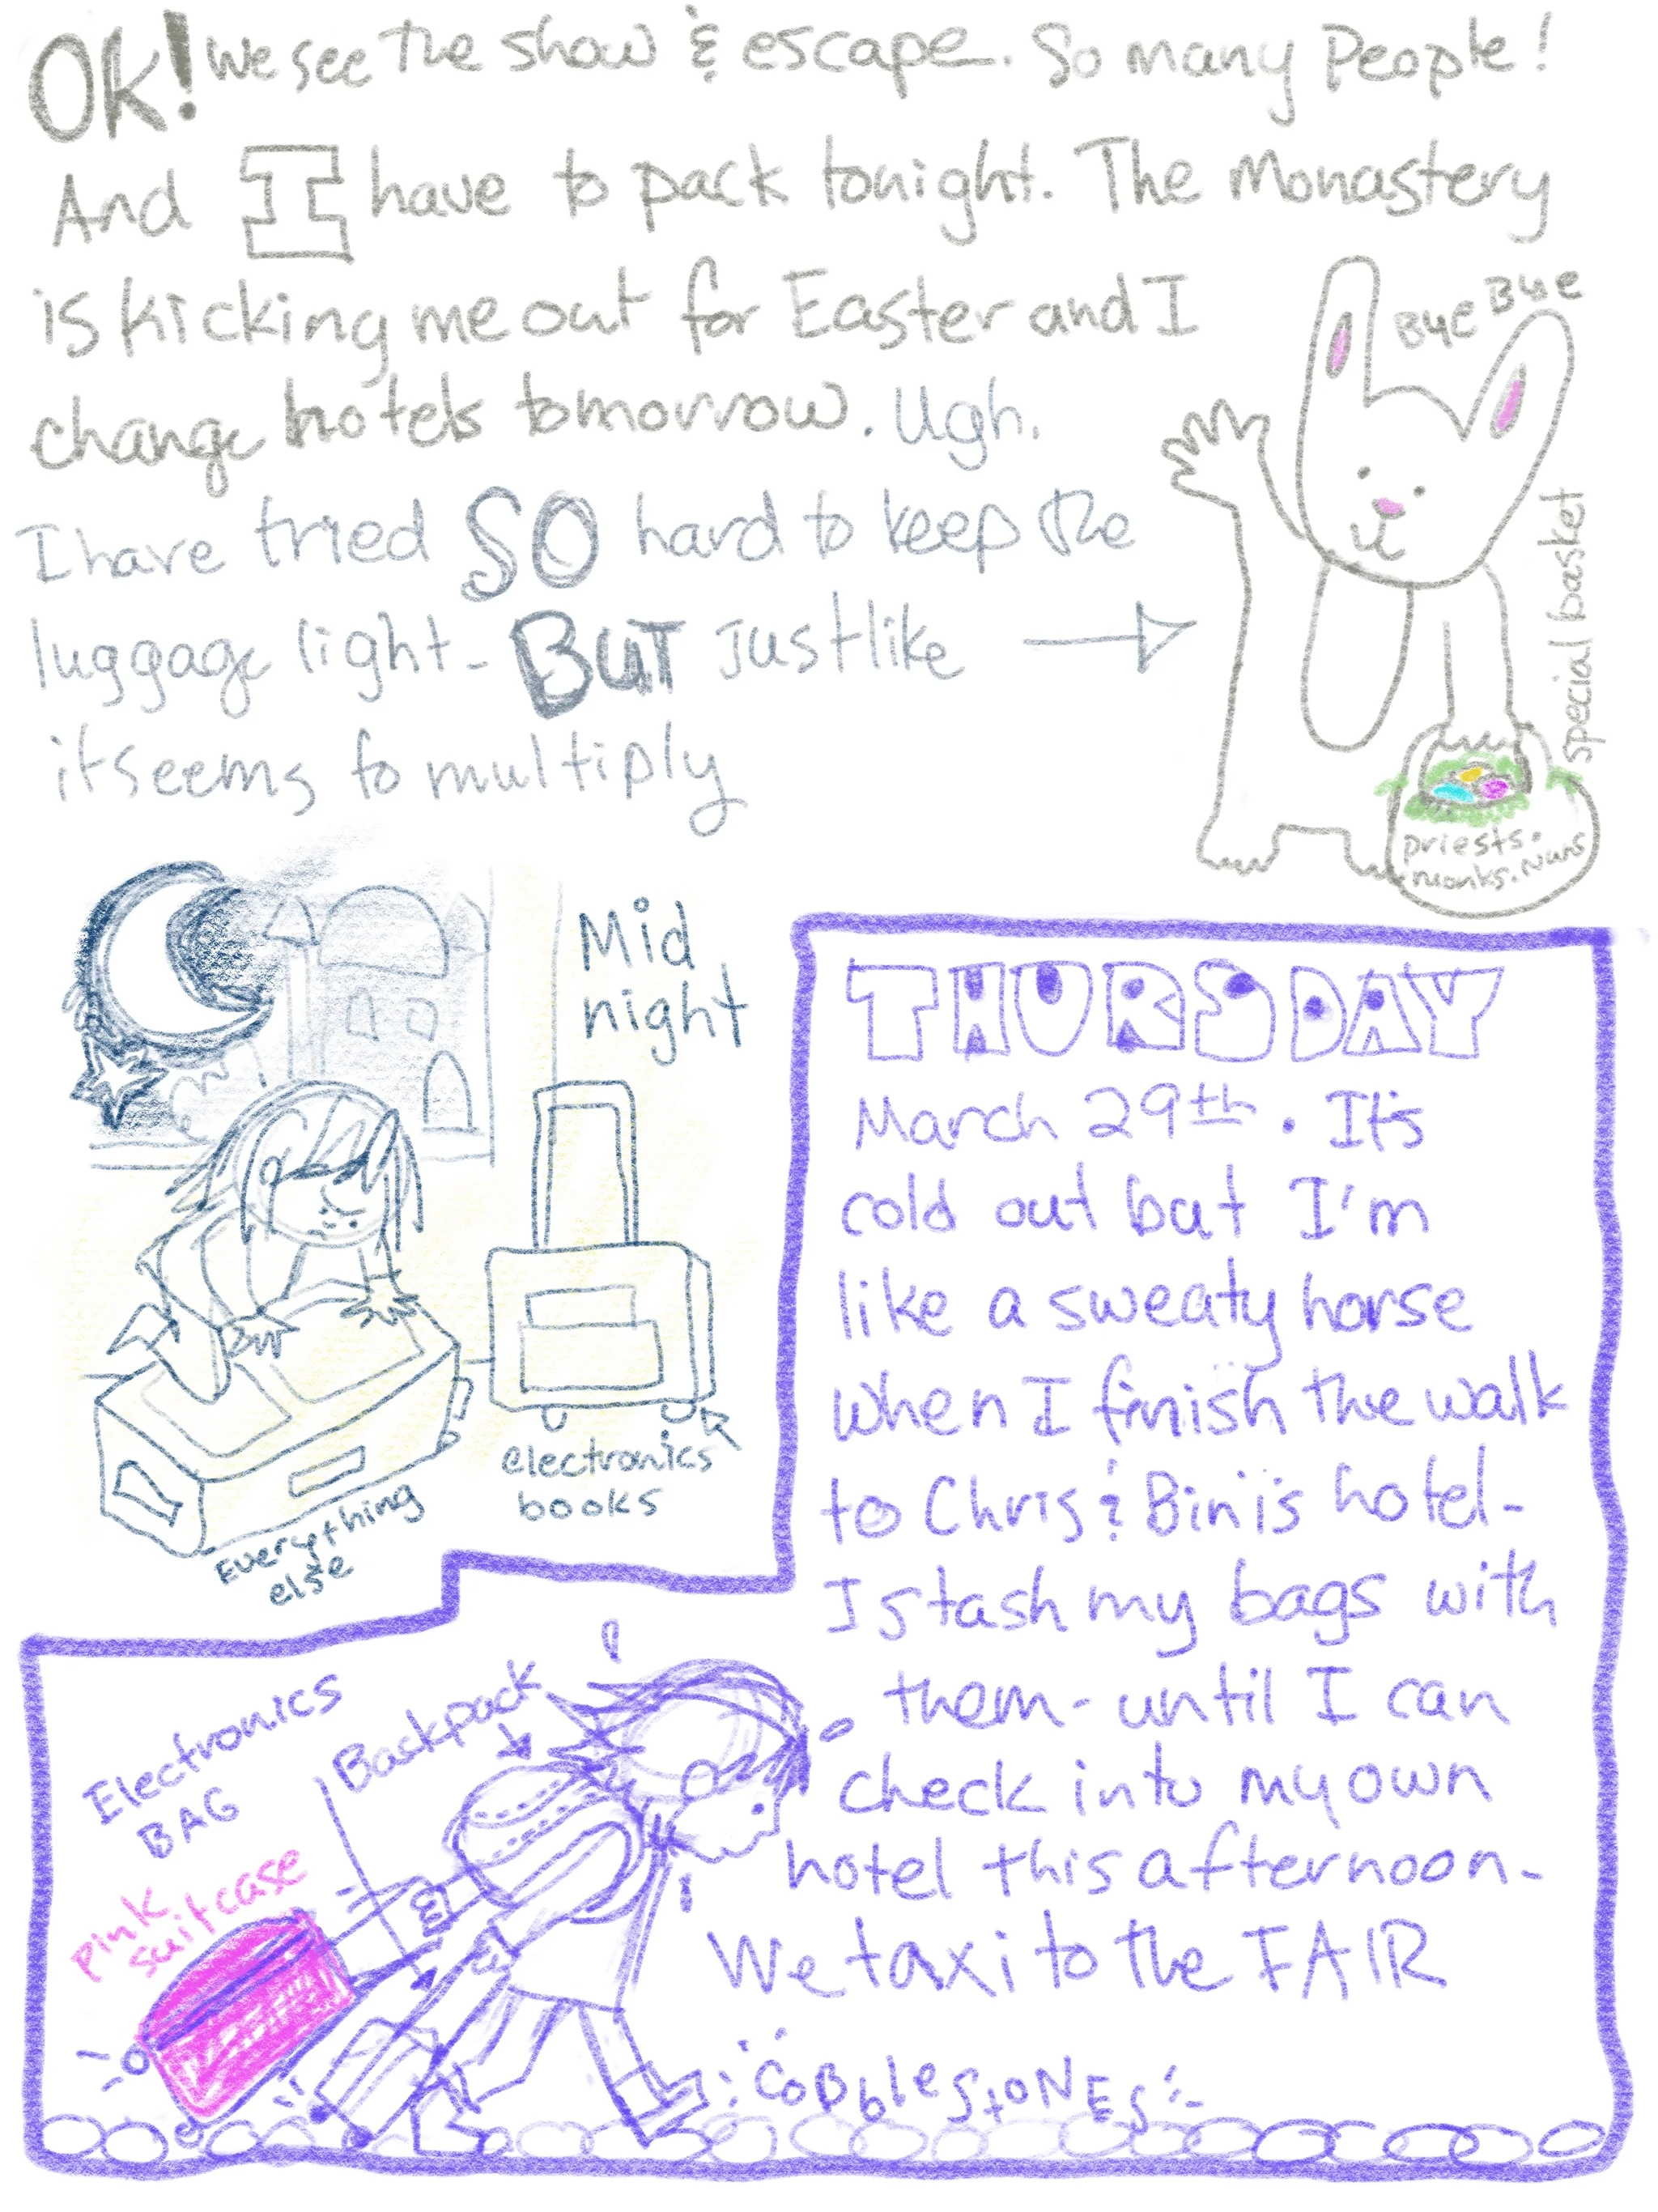 OK! We see the show & escape. So many People!
And I have to pack tonight. The Monastery
is kicking me out for Easter and I
change hotels tomorrow. Ugh.
I have tried SO hard to keep the
luggage light - BUT just like
it seems to multiply
Bye Bye
special basket
priests.
monks. Nuns
Mid
night
electronics
books
Everything
else
THURSDAY
March 29th. It's
cold out but I'm
like a sweaty horse
when I finish the walk
to Chris & Bini's hotel-
I stash my bags with
them - until I can
check into my own
hotel this afternoon-
We taxi to the FAIR
Electronics
BAG
Backpack
pink
suitcase
COBBlESTONES